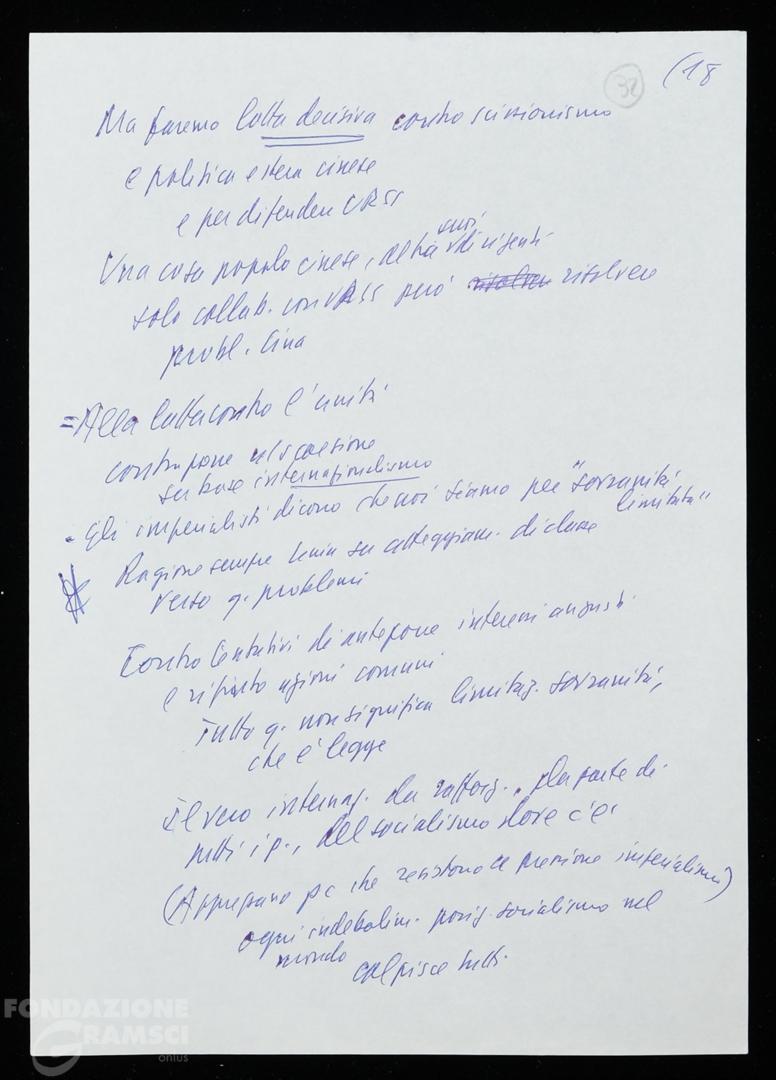 32
(18
Ma faremo lotta decisiva contro scissionismo
e politica estera cinese
e per difendere URSS
Una cosa popolo cinese, altra suoi dirigenti
solo collab. con URSS può risolvere risolvere
probl. Cina
= Alla lotta contro l'unità
contrapporre coesione
su base internazionalismo
- Gli imperialisti dicono che noi siamo per "sovranità
limitata"
Ragione sempre Lenin su atteggiam. di classe
verso q. problemi
Contro tentativi di anteporre interessi angusti
e rifiuto azioni comuni
Tutto q. non significa limitaz. sovranità,
che è legge
Il vero internaz. da rafforz., da parte di
tutti i p., del socialismo dove c'è
(Apprezzano pc che resistono a pressione imperialismo)
ogni indebolim. posiz. socialismo nel
mondo
colpisce tutti.
FONDAZIONE
GRAMSCI
onlus